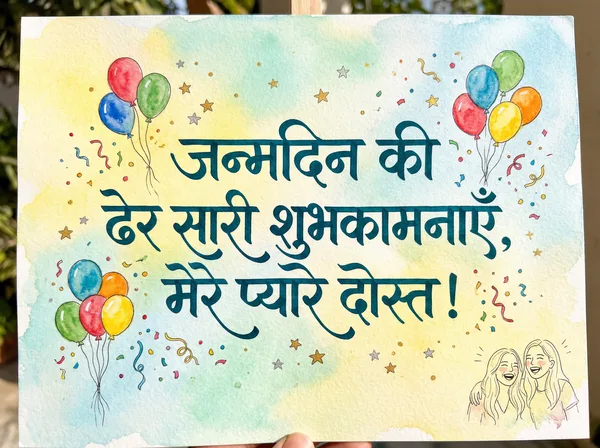 जन्मदिन की
ढेर सारी शुभकामनाएँ,
मेरे प्यारे दोस्त!